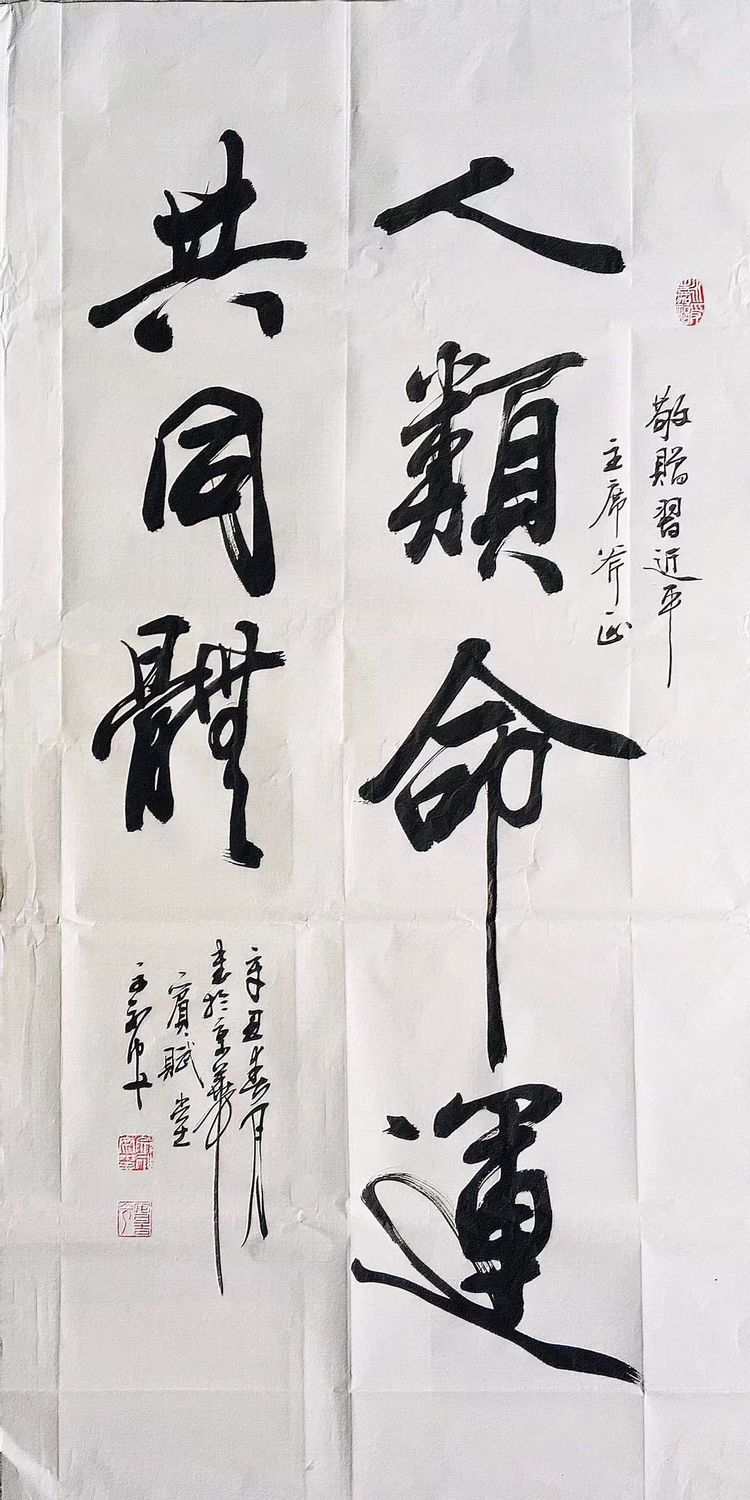 敬贈習近平
主席斧正
人類命運
共同體
辛丑春月
書於京華
賓賦堂